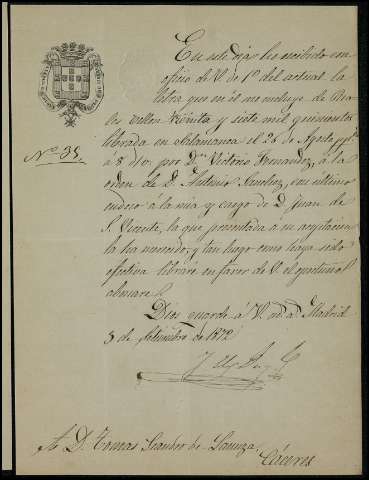 En este dia he recibido con
oficio de V. de 1º del actual la
letra que en él me incluye de Rea-
les vellon treinta y siete mil quinientos
librada en Salamanca el 28 de Agosto
a 8 d/v. por Dn. Victorio Fernandez, á la
Nº 35.
orden de D. Antonio Sanchez, con último
endoso á la mia y cargo de D. Juan de
S. Vicente, la que presentada a su aceptacion
la ha merecido, y tan luego como haya sido
efectiva libraré en favor de V. el oportuno
abonaré.
Dios guarde á V. m. a. Madrid
3 de Setiembre de 1872
A D. Tomas Leandro de
Cáceres